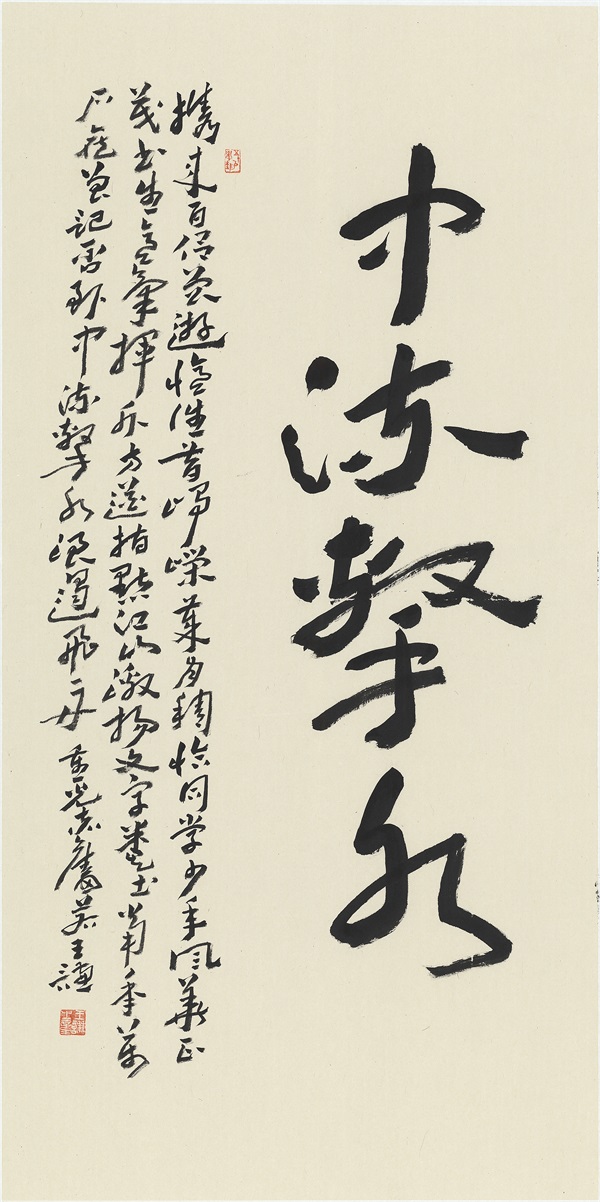 中流擊水
携來百侣曾遊憶往昔崢嶸歲月稠恰同学少年風華正
茂書生意氣揮斥方遒指點江山激揚文字糞土當年萬
戶侯曾記否到中流擊水浪遏飛舟 王謙